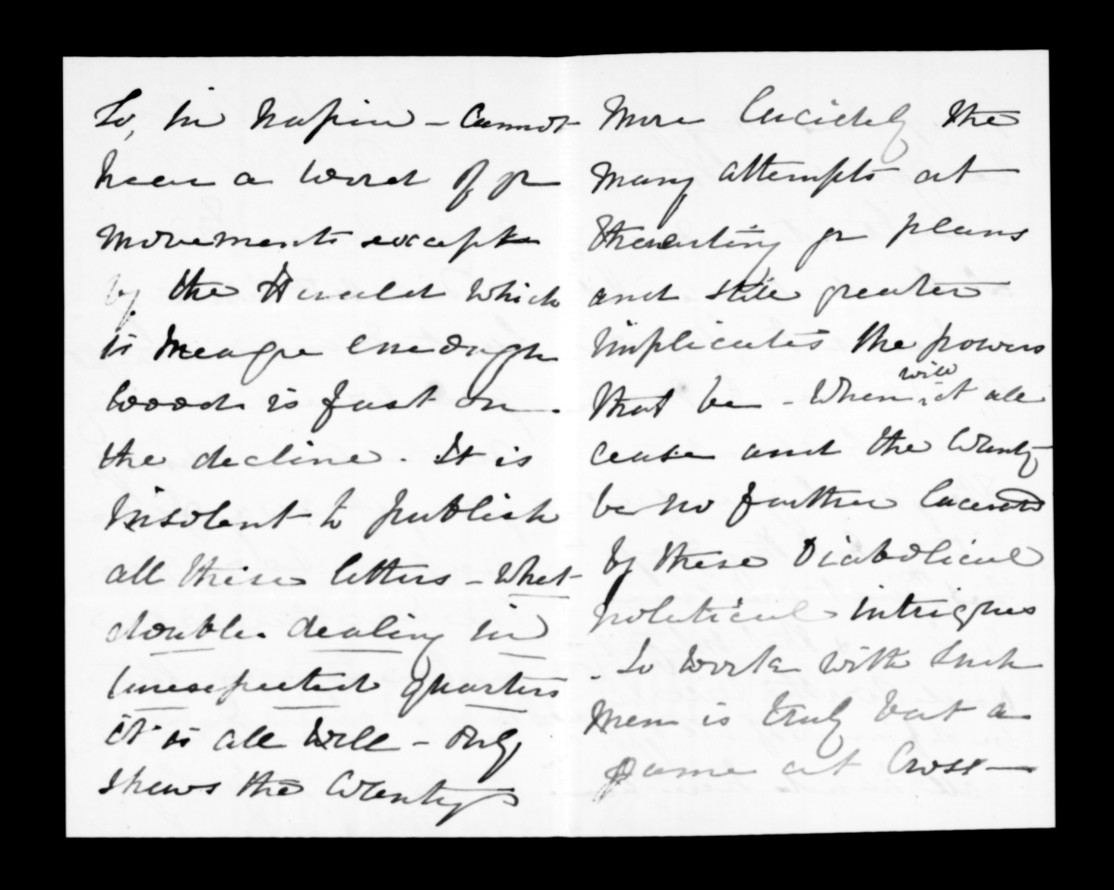 So, in Napier - cannot
hear a word of yr
movements except
by the Herald which
is meagre enough
Wood is fast on
the decline. It is
insolent to publish
all these letters - What
double dealing in
unexpected quarters
it is all well - only
shews the County
more lucidly the
many attempts at
thwarting yr plans
and still greater
implicates the powers
that be - When will it all
cease and the County
be no further lacerated
by these Diabolical
political intrigues
. To work with such
men is truly but a
game at Cross-